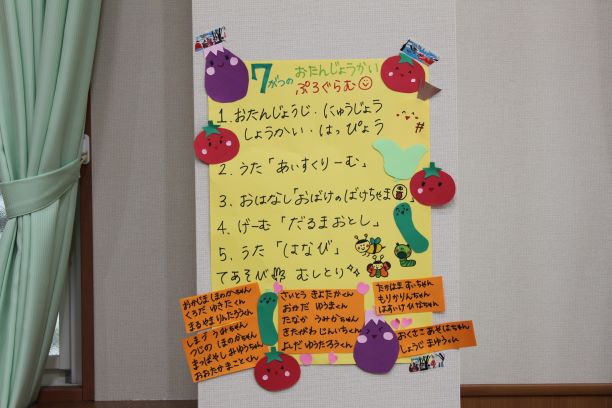 7がつの おたんじょうかい
ぷろぐらむ
1. おたんじょうじ・にゅうじょう
しょうかい・はっぴょう
2. うた「あいすくりーむ」
3. おはなし「おばけのばけちゃま」
4. げーむ「だるまおとし」
5. うた「はなび」
てあそび むしとり
おかじま ほのかちゃん
くろだ ゆきたくん
まるやま りんたろうくん
しまづ
つじの ほのかちゃん
まつばやし みゆうちゃん
おおたか まことくん
さいとう きよたかくん
おかだ ゆうまくん
たなか うみかちゃん
きたがわ じんいちくん
よしだ ゆうたろうくん
たかはま すいちゃん
もり かりんちゃん
はすいけ ひなちゃん
おくさこ あそはちゃん
しょうじ まゆうくん